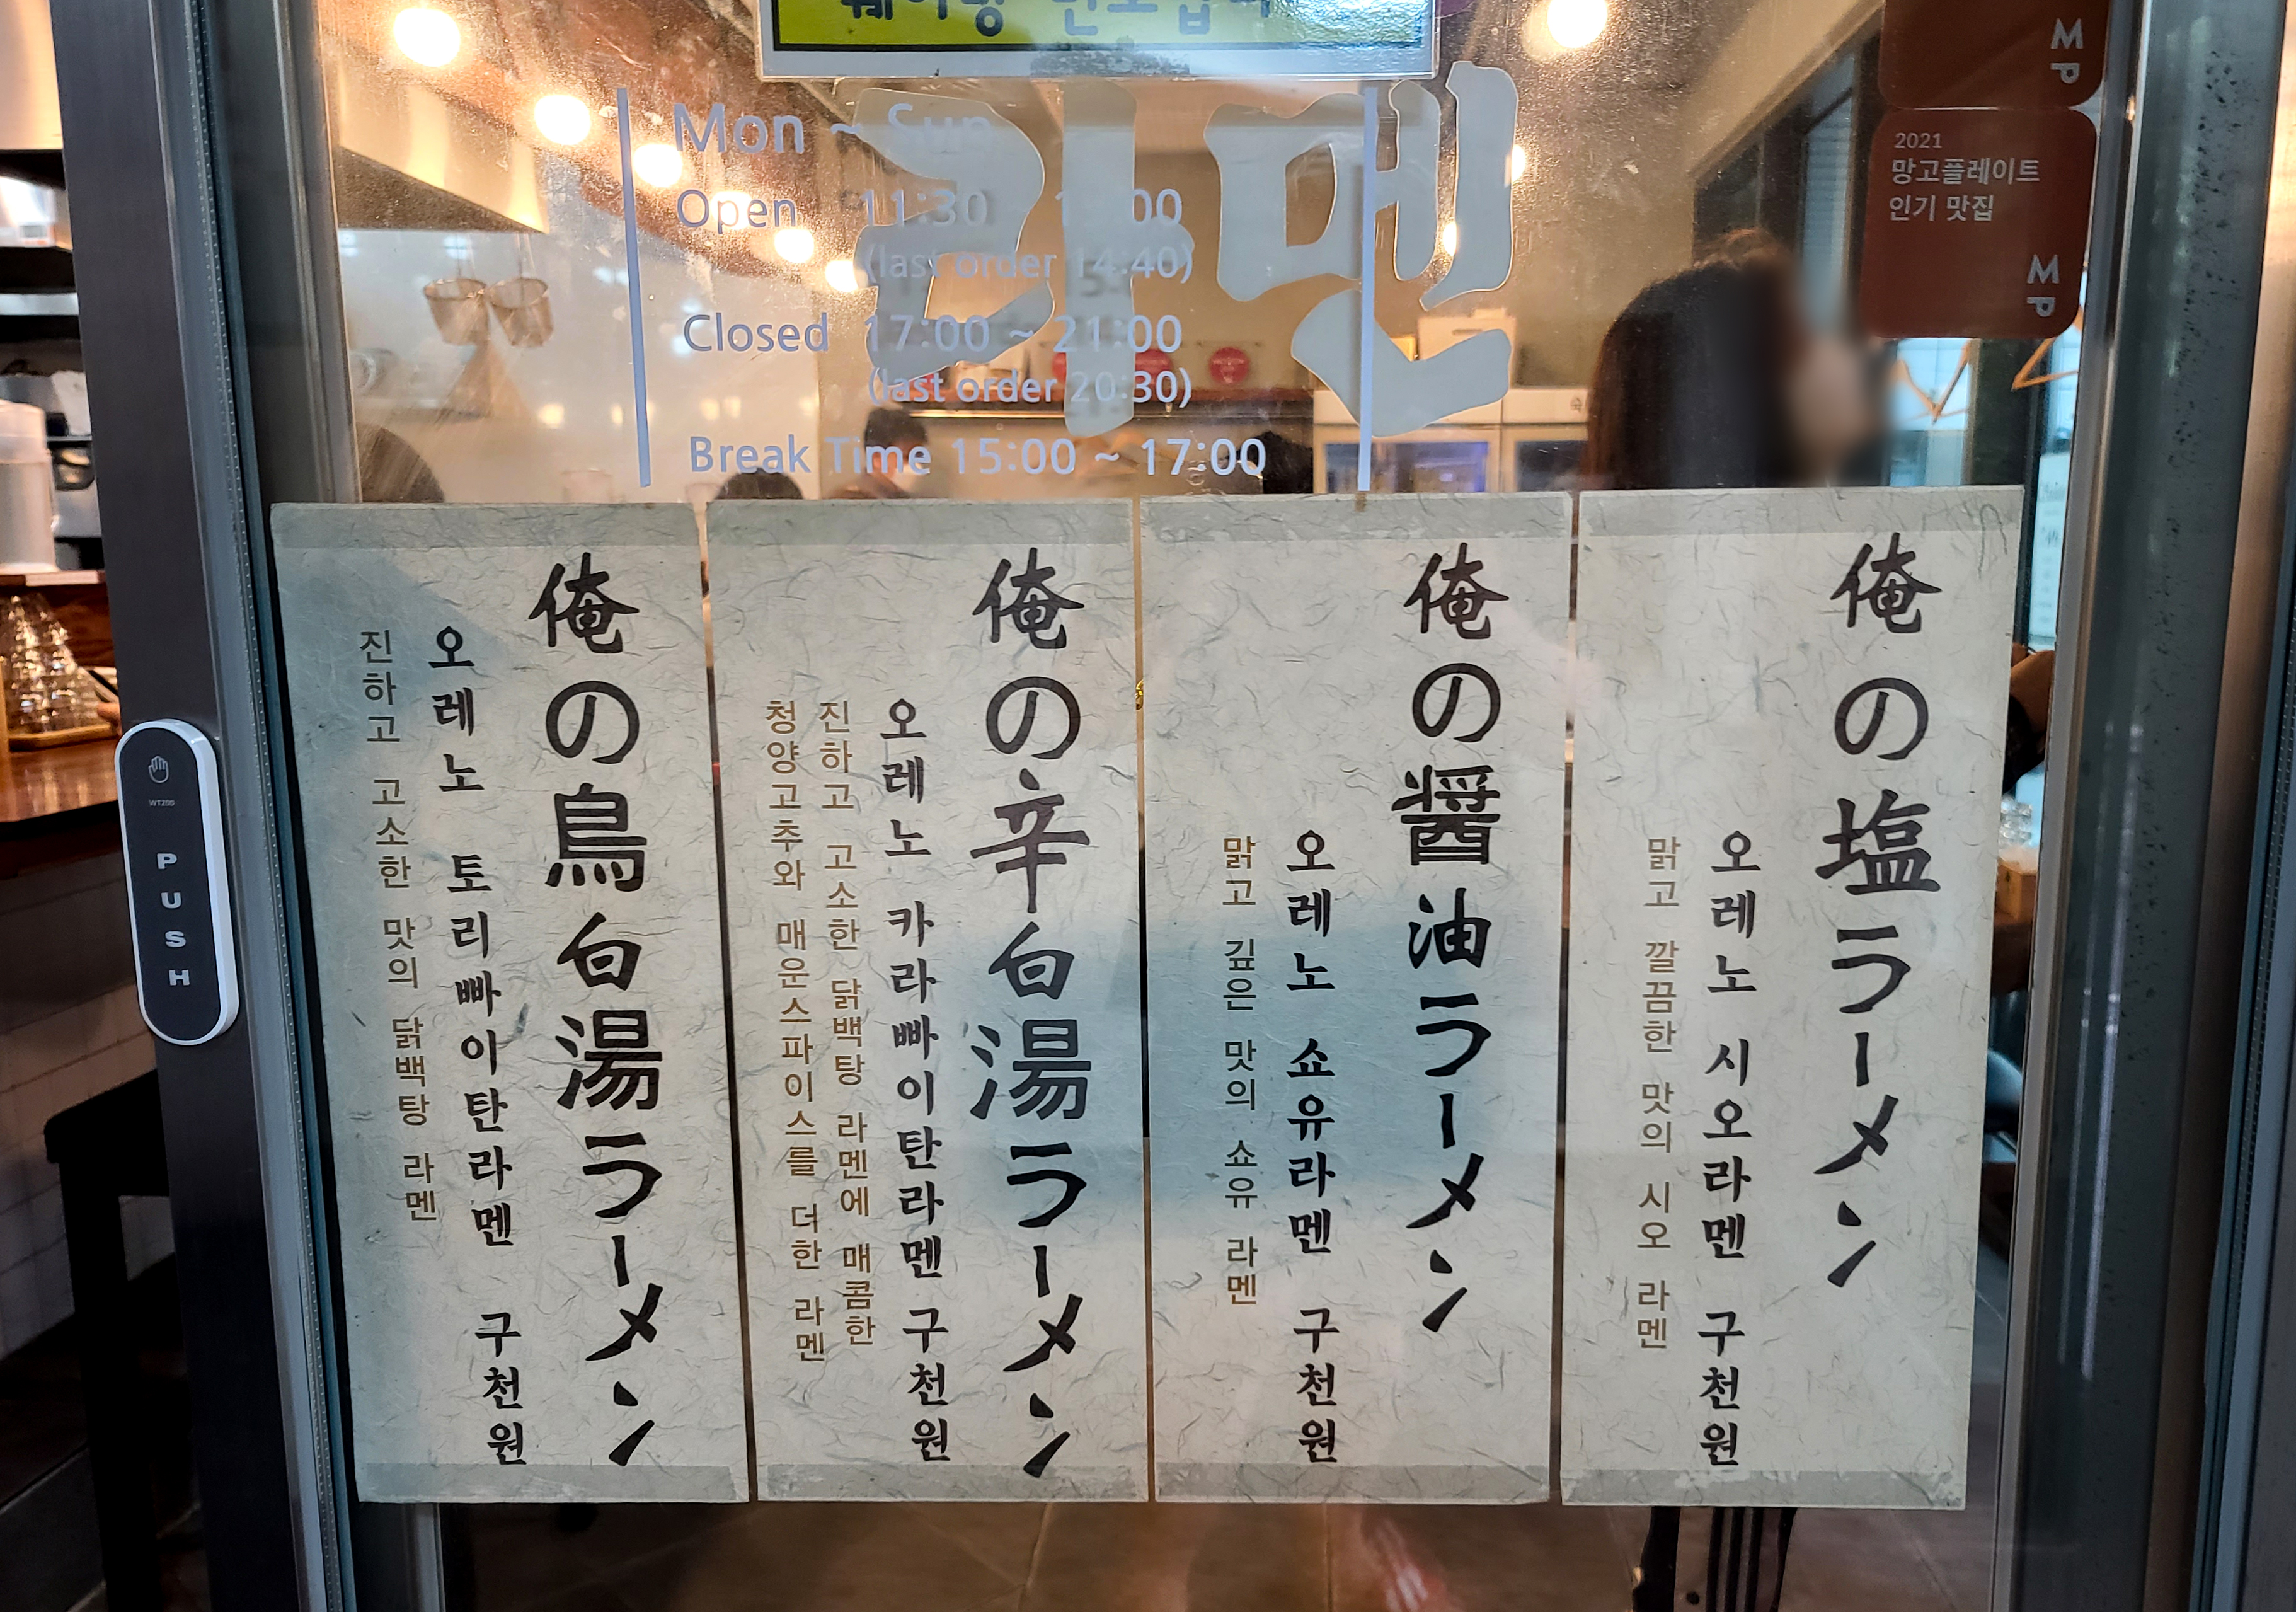 라멘
Mon ~ Sun
Open 11:30
(last order 14:40)
Closed 17:00 ~ 21:00
(last order 20:30)
Break Time 15:00 ~ 17:00
MP
2021
망고플레이트
인기 맛집
MP
WT200
PUSH
俺の塩ラーメン
오레노 시오라멘 구천원
맑고 깔끔한 맛의 시오 라멘
俺の醤油ラーメン
오레노 쇼유라멘 구천원
맑고 깊은 맛의 쇼유 라멘
俺の辛白湯ラーメン
오레노 카라빠이탄라멘 구천원
진하고 고소한 닭백탕 라멘에 매콤한
청양고추와 매운스파이스를 더한 라멘
俺の鳥白湯ラーメン
오레노 토리빠이탄라멘 구천원
진하고 고소한 맛의 닭백탕 라멘